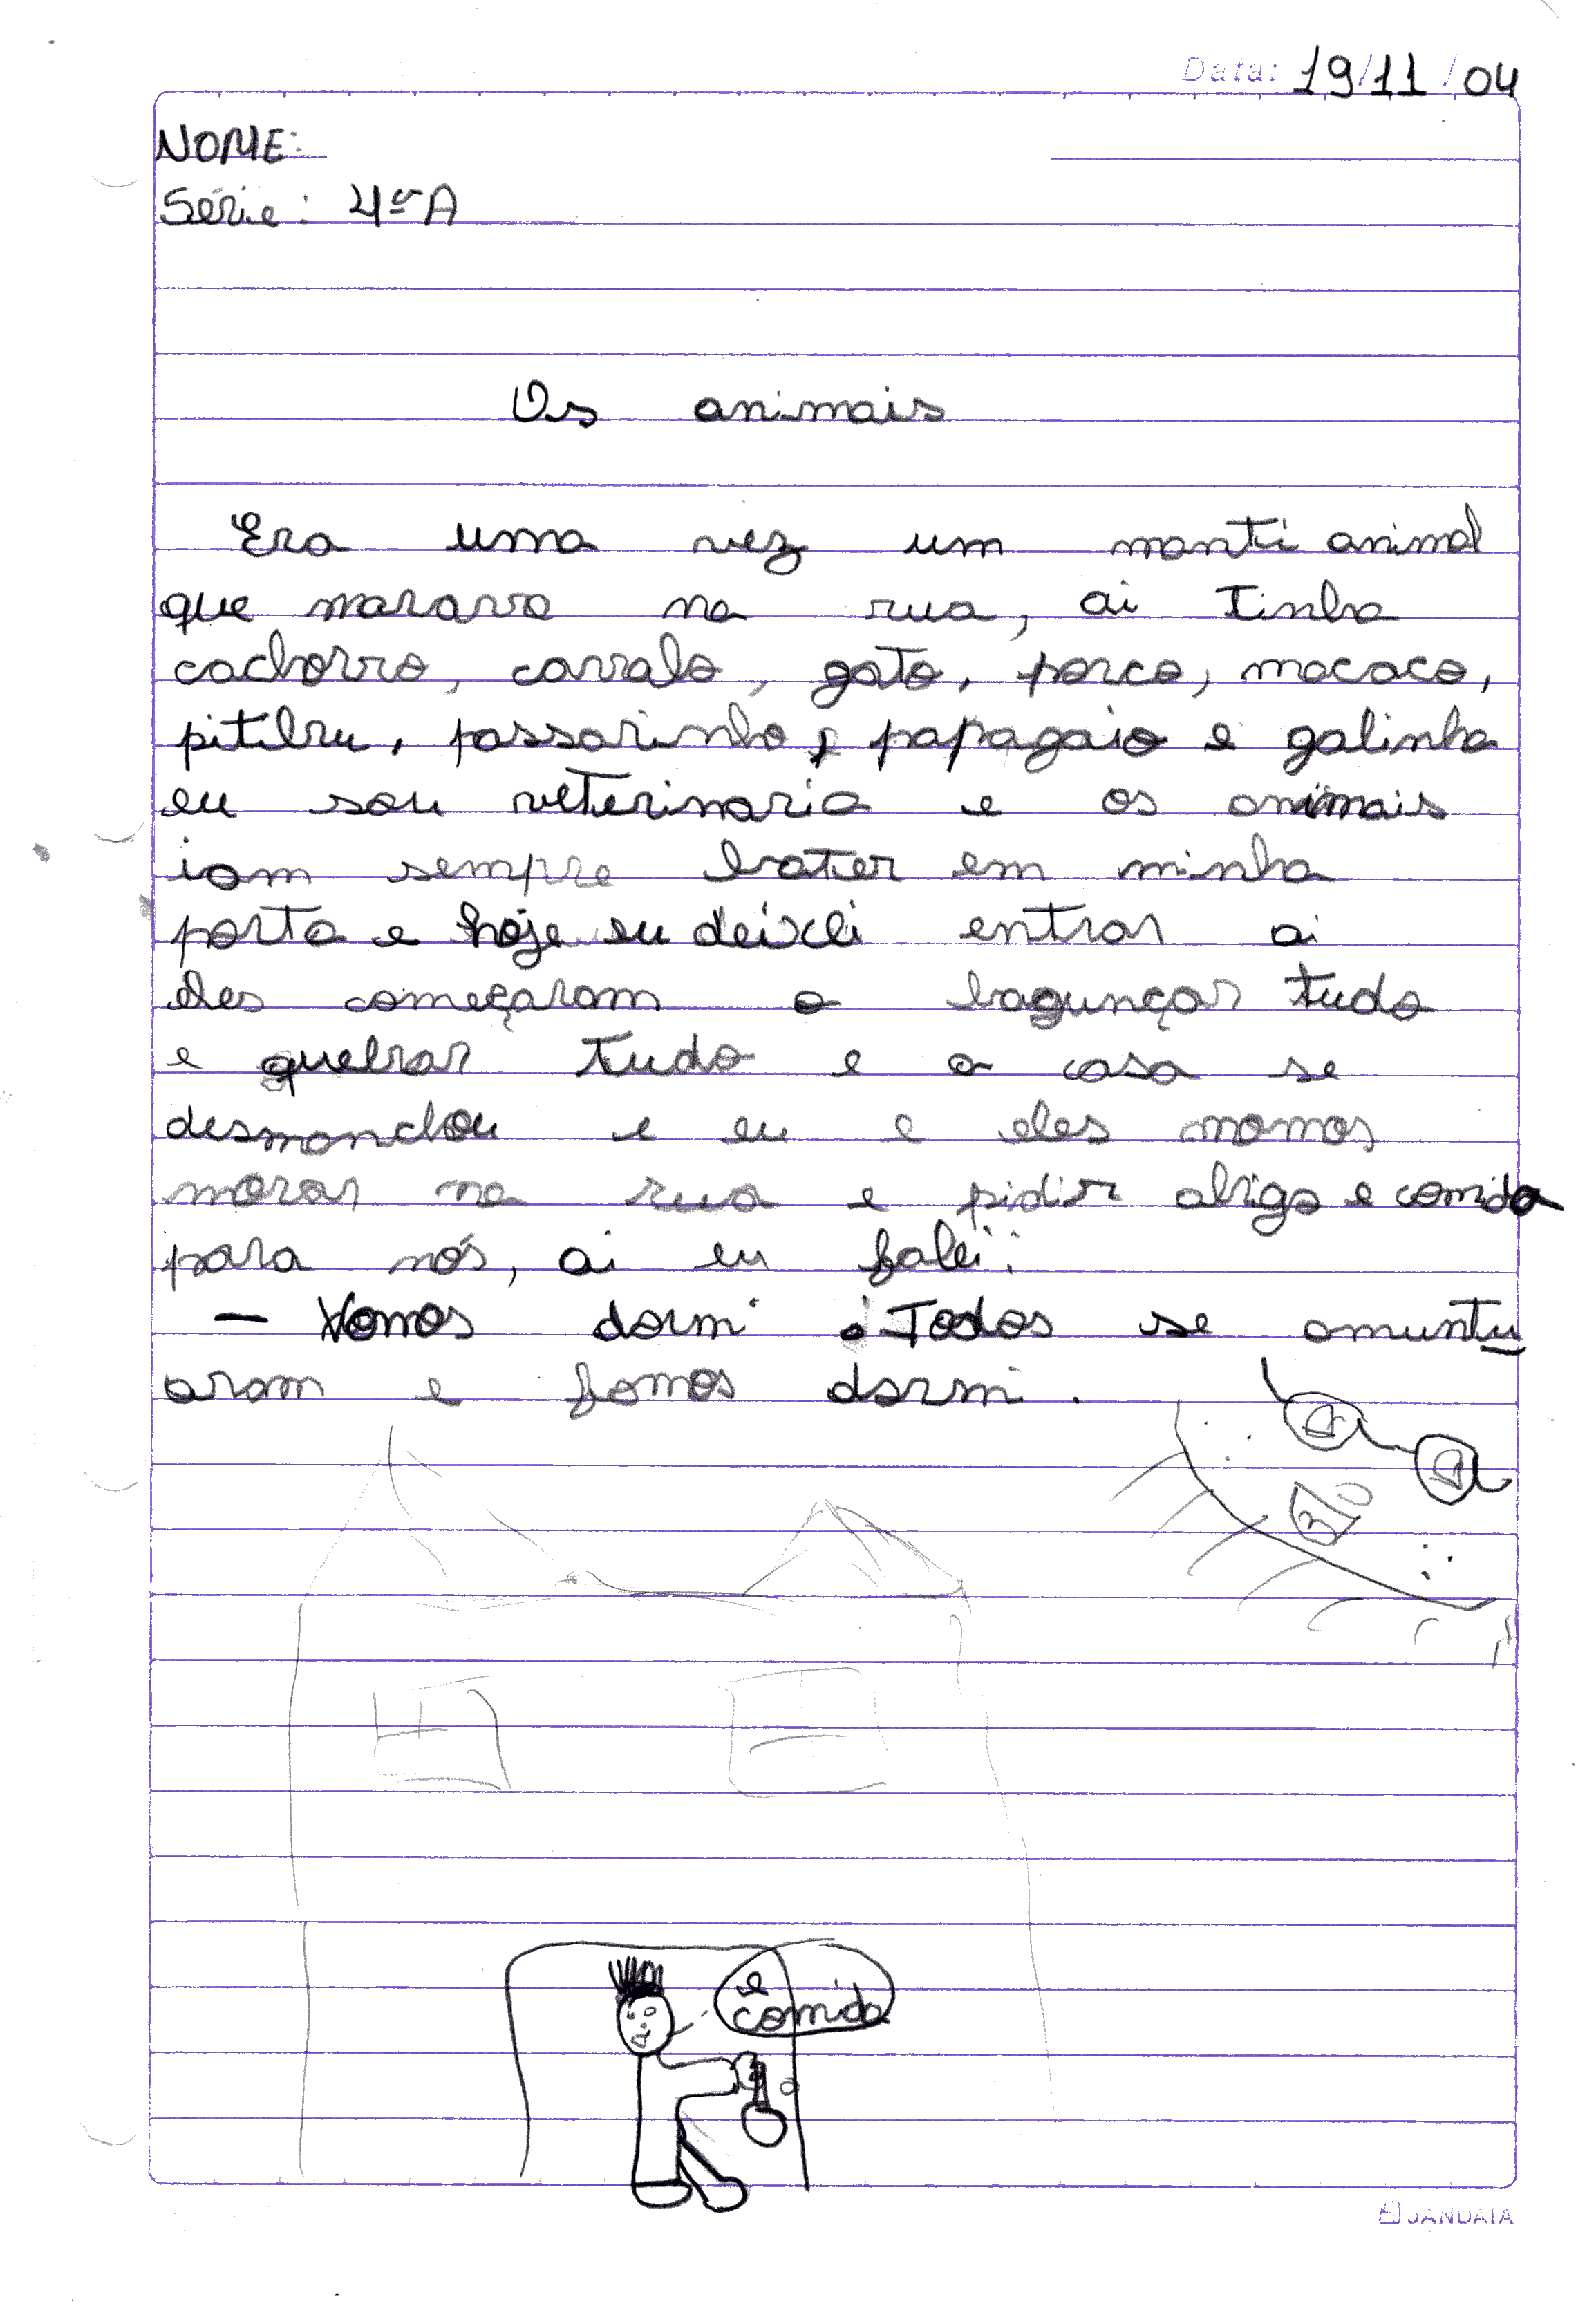 Data: 19/11/04
NOME:
Série: 4ªA
Os animais
Era uma vez um monti animal
que morava na rua, ai tinha
cachorro, cavalo, gato, porco, macaco,
pitibru, passarinho, papagaio e galinha
eu sou veterinaria e os animais
iam sempre bater em minha
porta e hoje eu deixei entrar ai
eles começaram a bagunçar tudo
e quebrar tudo e a casa se
desmanchou e eu e eles momos
morar na rua e pidir abigo e comida
para nós, ai eu falei:
— Vamos dormi. Todos se amuntu
aram e fomos dormi.
e
comida
JANDAIA